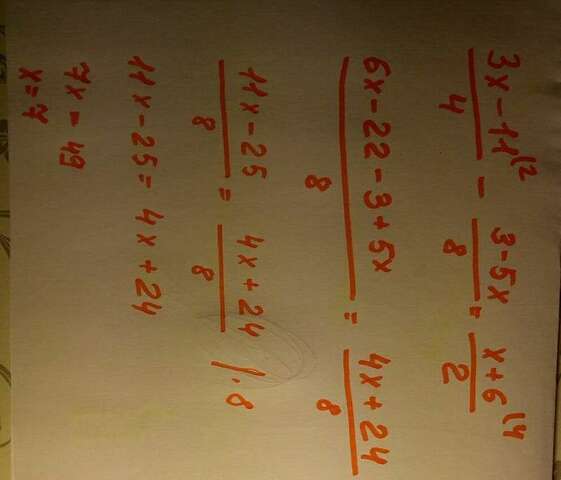 (3x - 11)/4 (2 - (3-5x)/8 = (x+6)/2 (4
(6x - 22 - 3 + 5x)/8 = (4x + 24)/8
(11x - 25)/8 = (4x + 24)/8 /·8
11x - 25 = 4x + 24
7x = 49
x = 7